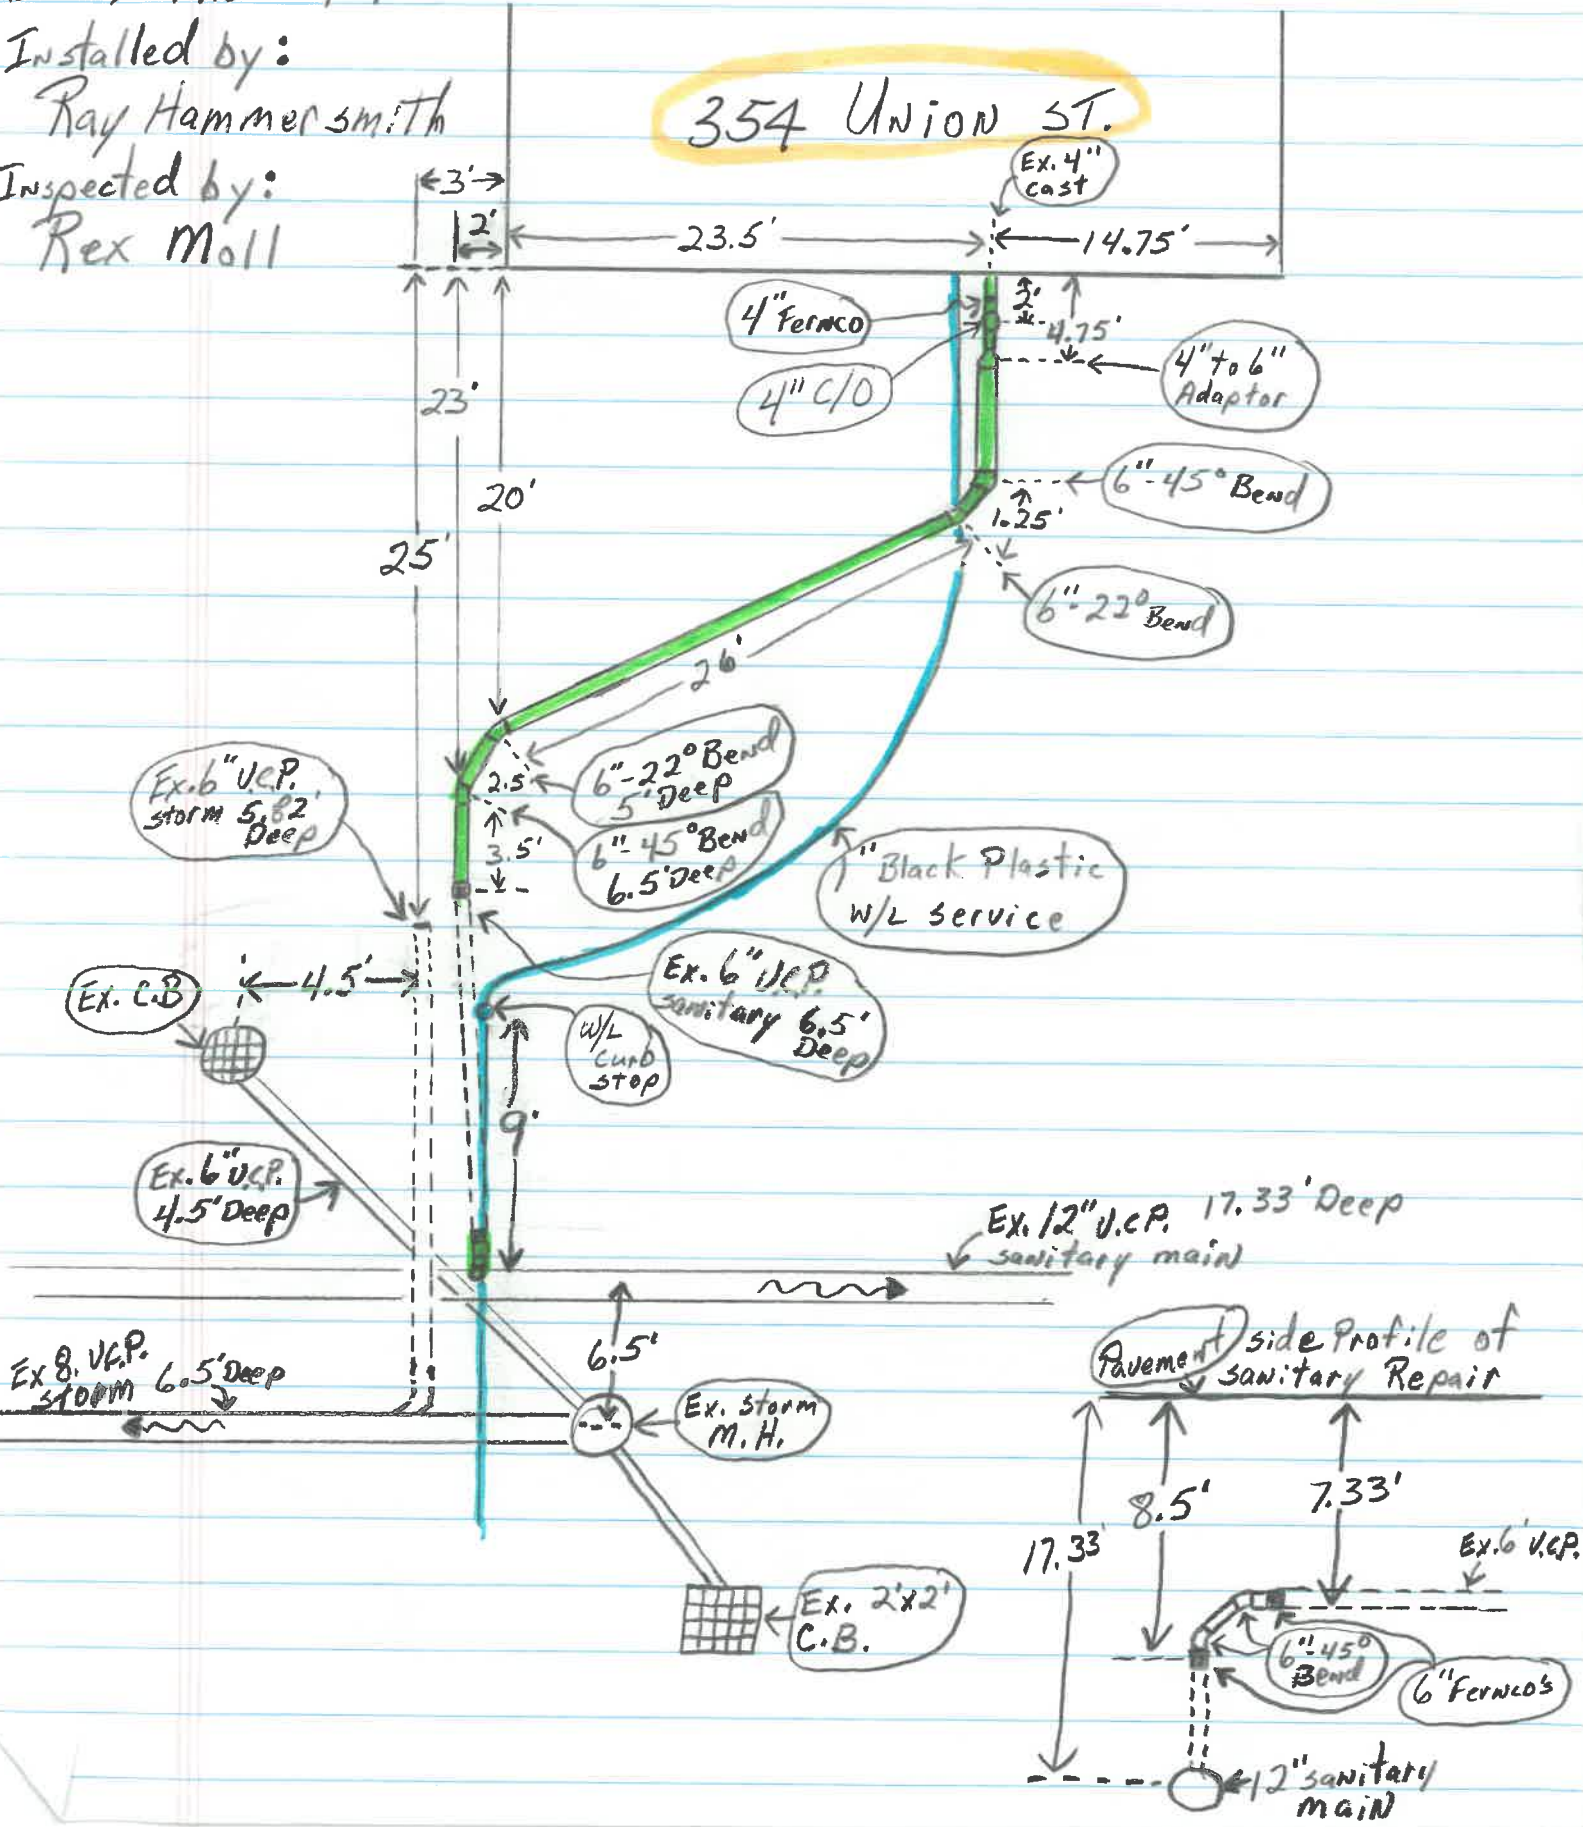 Installed by:
Ray Hammersmith
Inspected by:
Rex Moll
354 UNION ST.
Ex. 4"
cast
3'
2'
23.5'
14.75'
4" Fernco
2'
4.75'
4" C/O
4" to 6"
Adaptor
23'
20'
25'
6"-45° Bend
1.25'
6"-22° Bend
26'
6"-22° Bend
5' Deep
2.5'
6"-45° Bend
6.5' Deep
3.5'
Ex. 6" V.C.P.
storm 5.82'
Deep
1" Black Plastic
W/L service
Ex. C.B
4.5'
Ex. 6" V.C.P.
sanitary 6.5'
Deep
W/L
curb
stop
9'
Ex. 6" V.C.P.
4.5' Deep
Ex. 12" V.C.P. 17.33' Deep
sanitary main
6.5'
Ex 8. V.C.P.
storm 6.5' Deep
Ex. storm
M.H.
Ex. 2'x2'
C.B.
Pavement side Profile of
sanitary Repair
17.33'
8.5'
7.33'
Ex. 6" V.C.P.
6"-45°
Bend
6" Fernco's
12" sanitary
main